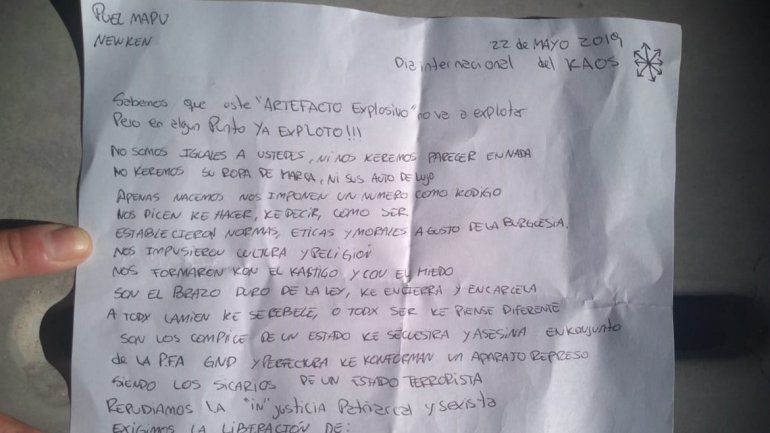 PUEL MAPU
NEWKEN
22 de MAYO 2019
Dia internacional del KAOS
Sabemos que este "ARTEFACTO Explosivo" no va a explotar
Pero en algun Punto YA EXPLOTO!!!
NO SOMOS IGUALES A USTEDES, NI NOS KEREMOS PARECER EN NADA
NO KEREMOS SU ROPA DE MARCA, NI SUS AUTO DE LUJO
APENAS NACEMOS NOS IMPONEN UN NUMERO COMO KODIGO
NOS DICEN KE HACER, KE DECIR, COMO SER
ESTABLECIERON NORMAS, ETICAS Y MORALES A GUSTO DE LA BURGUESIA.
NOS IMPUSIERON CULTURA Y RELIGIÓN
NOS FORMARON KON EL KASTIGO Y CON EL MIEDO
SON EL BRAZO DURO DE LA LEY, KE ENCIERRA Y ENCARCELA
A TODX LAMIEN KE SE REBELE, O TODX SER KE PIENSE DIFERENTE
SON LOS COMPLICE DE UN ESTADO KE SECUESTRA Y ASESINA EN KONJUNTO
de LA P.F.A GND Y PERFECTURA KE KONFORMAN UN APARATO REPRESO
SIENDO LOS SICARIOS DE UN ESTADO TERRORISTA
REPUDIAMOS LA "in" justicia Patriarcal y sexista
EXIGIMOS LA LIBERACIÓN DE: